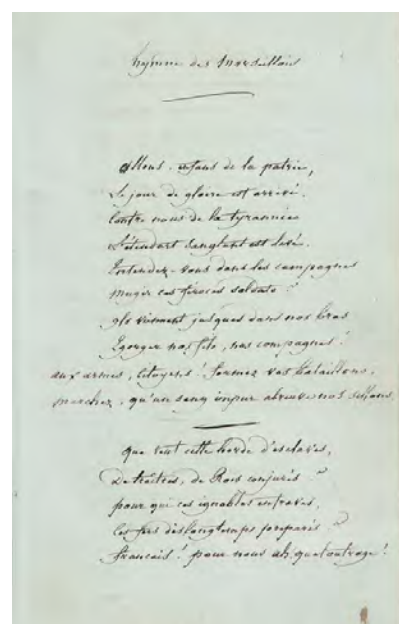 hymne des Marseillais
Allons. enfans de la patrie,
Le jour de gloire est arrivé.
Contre nous de la tyrannie
L'étendart sanglant est levé.
Entendez-vous dans les campagnes
Mugir ces féroces soldats ?
ils viennent jusques dans nos bras
Egorger nos fils, nos compagnes !
aux armes, Citoyens ! formez vos bataillons,
marchez, qu'un sang impur abreuve nos sillons.
Que veut cette horde d'esclaves,
De traîtres, de Rois conjurés ?
pour qui ces ignobles entraves,
Ces fers dès longtemps préparés ?
français ! pour nous ah, quel outrage !